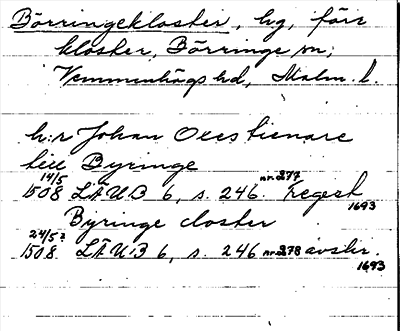 Börringekloster, hg, förr
kloster, Börringe sn,
Vemmenhögs hd, Malm. l.
h:r Johan Oles tienare
till Byringe
14/5 1508 LÄUB 6, s. 246 nr 277 Regest 1693
Byringe closter
24/5? 1508 LÄUB 6, s. 246 nr 278 avskr. 1693